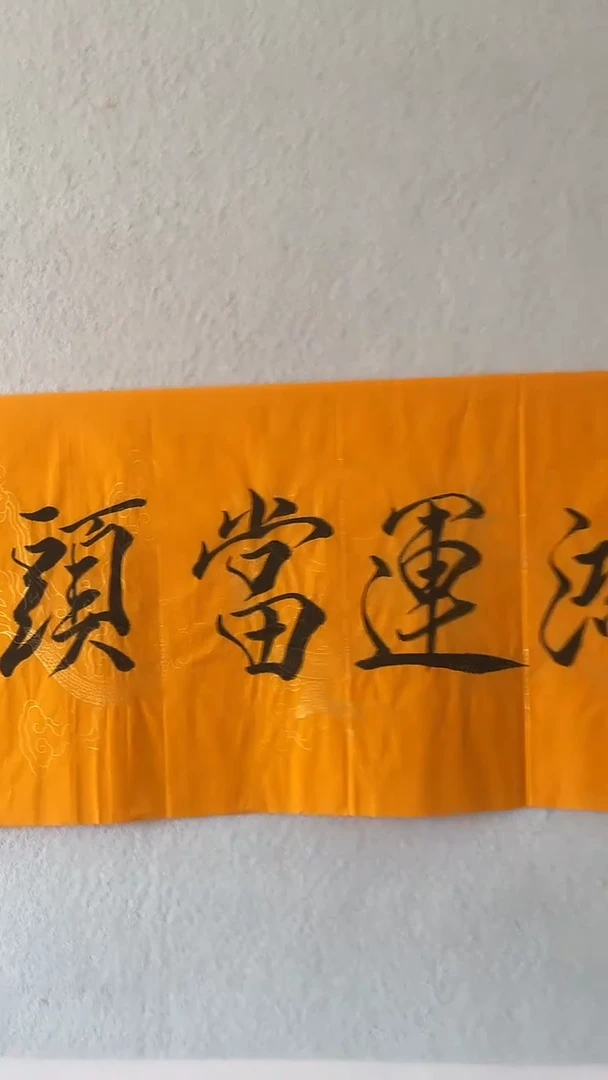 運當頭